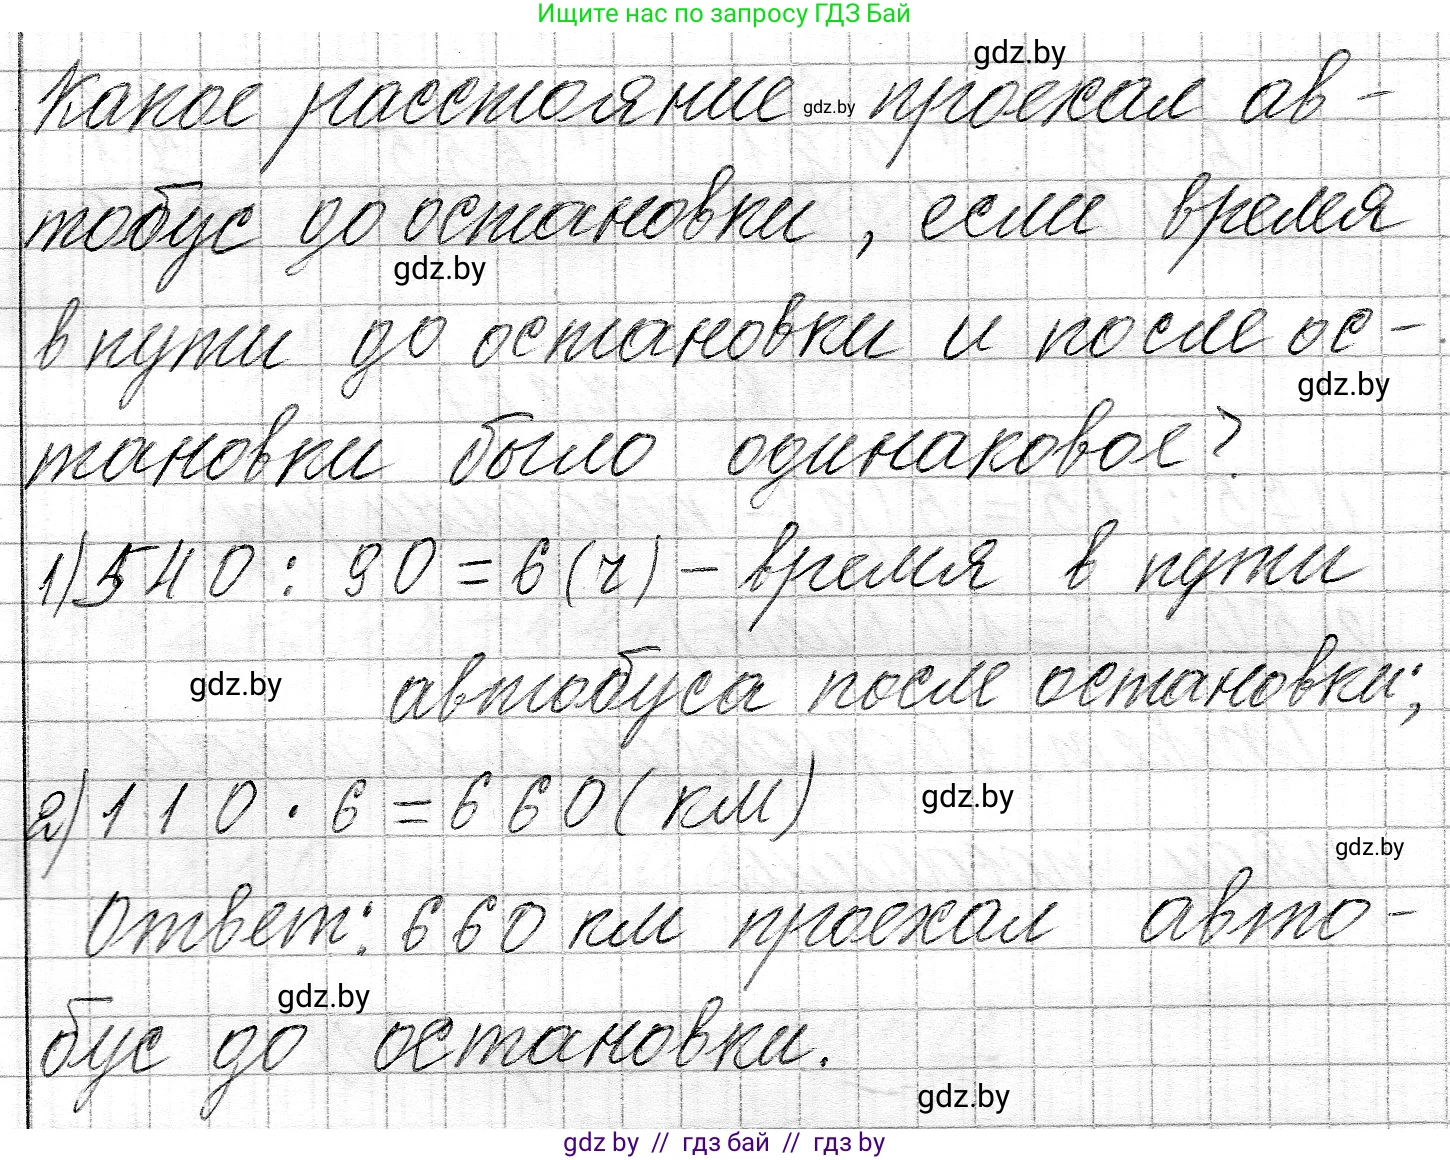 Ищите нас по запросу ГДЗ Бай
gdz.by
Какое расстояние gdz.by проехал ав-
тобус до остановки, если время
gdz.by
в пути до остановки и после ос-
gdz.by
тановки было одинаковое?
1) 540 : 90 = 6 (ч) - время в пути
gdz.by автобуса после остановки;
2) 110 · 6 = 660 (км) gdz.by
gdz.by
Ответ: 660 км проехал авто-
gdz.by
бус до остановки.
gdz.by
gdz by // гдз бай // гдз by